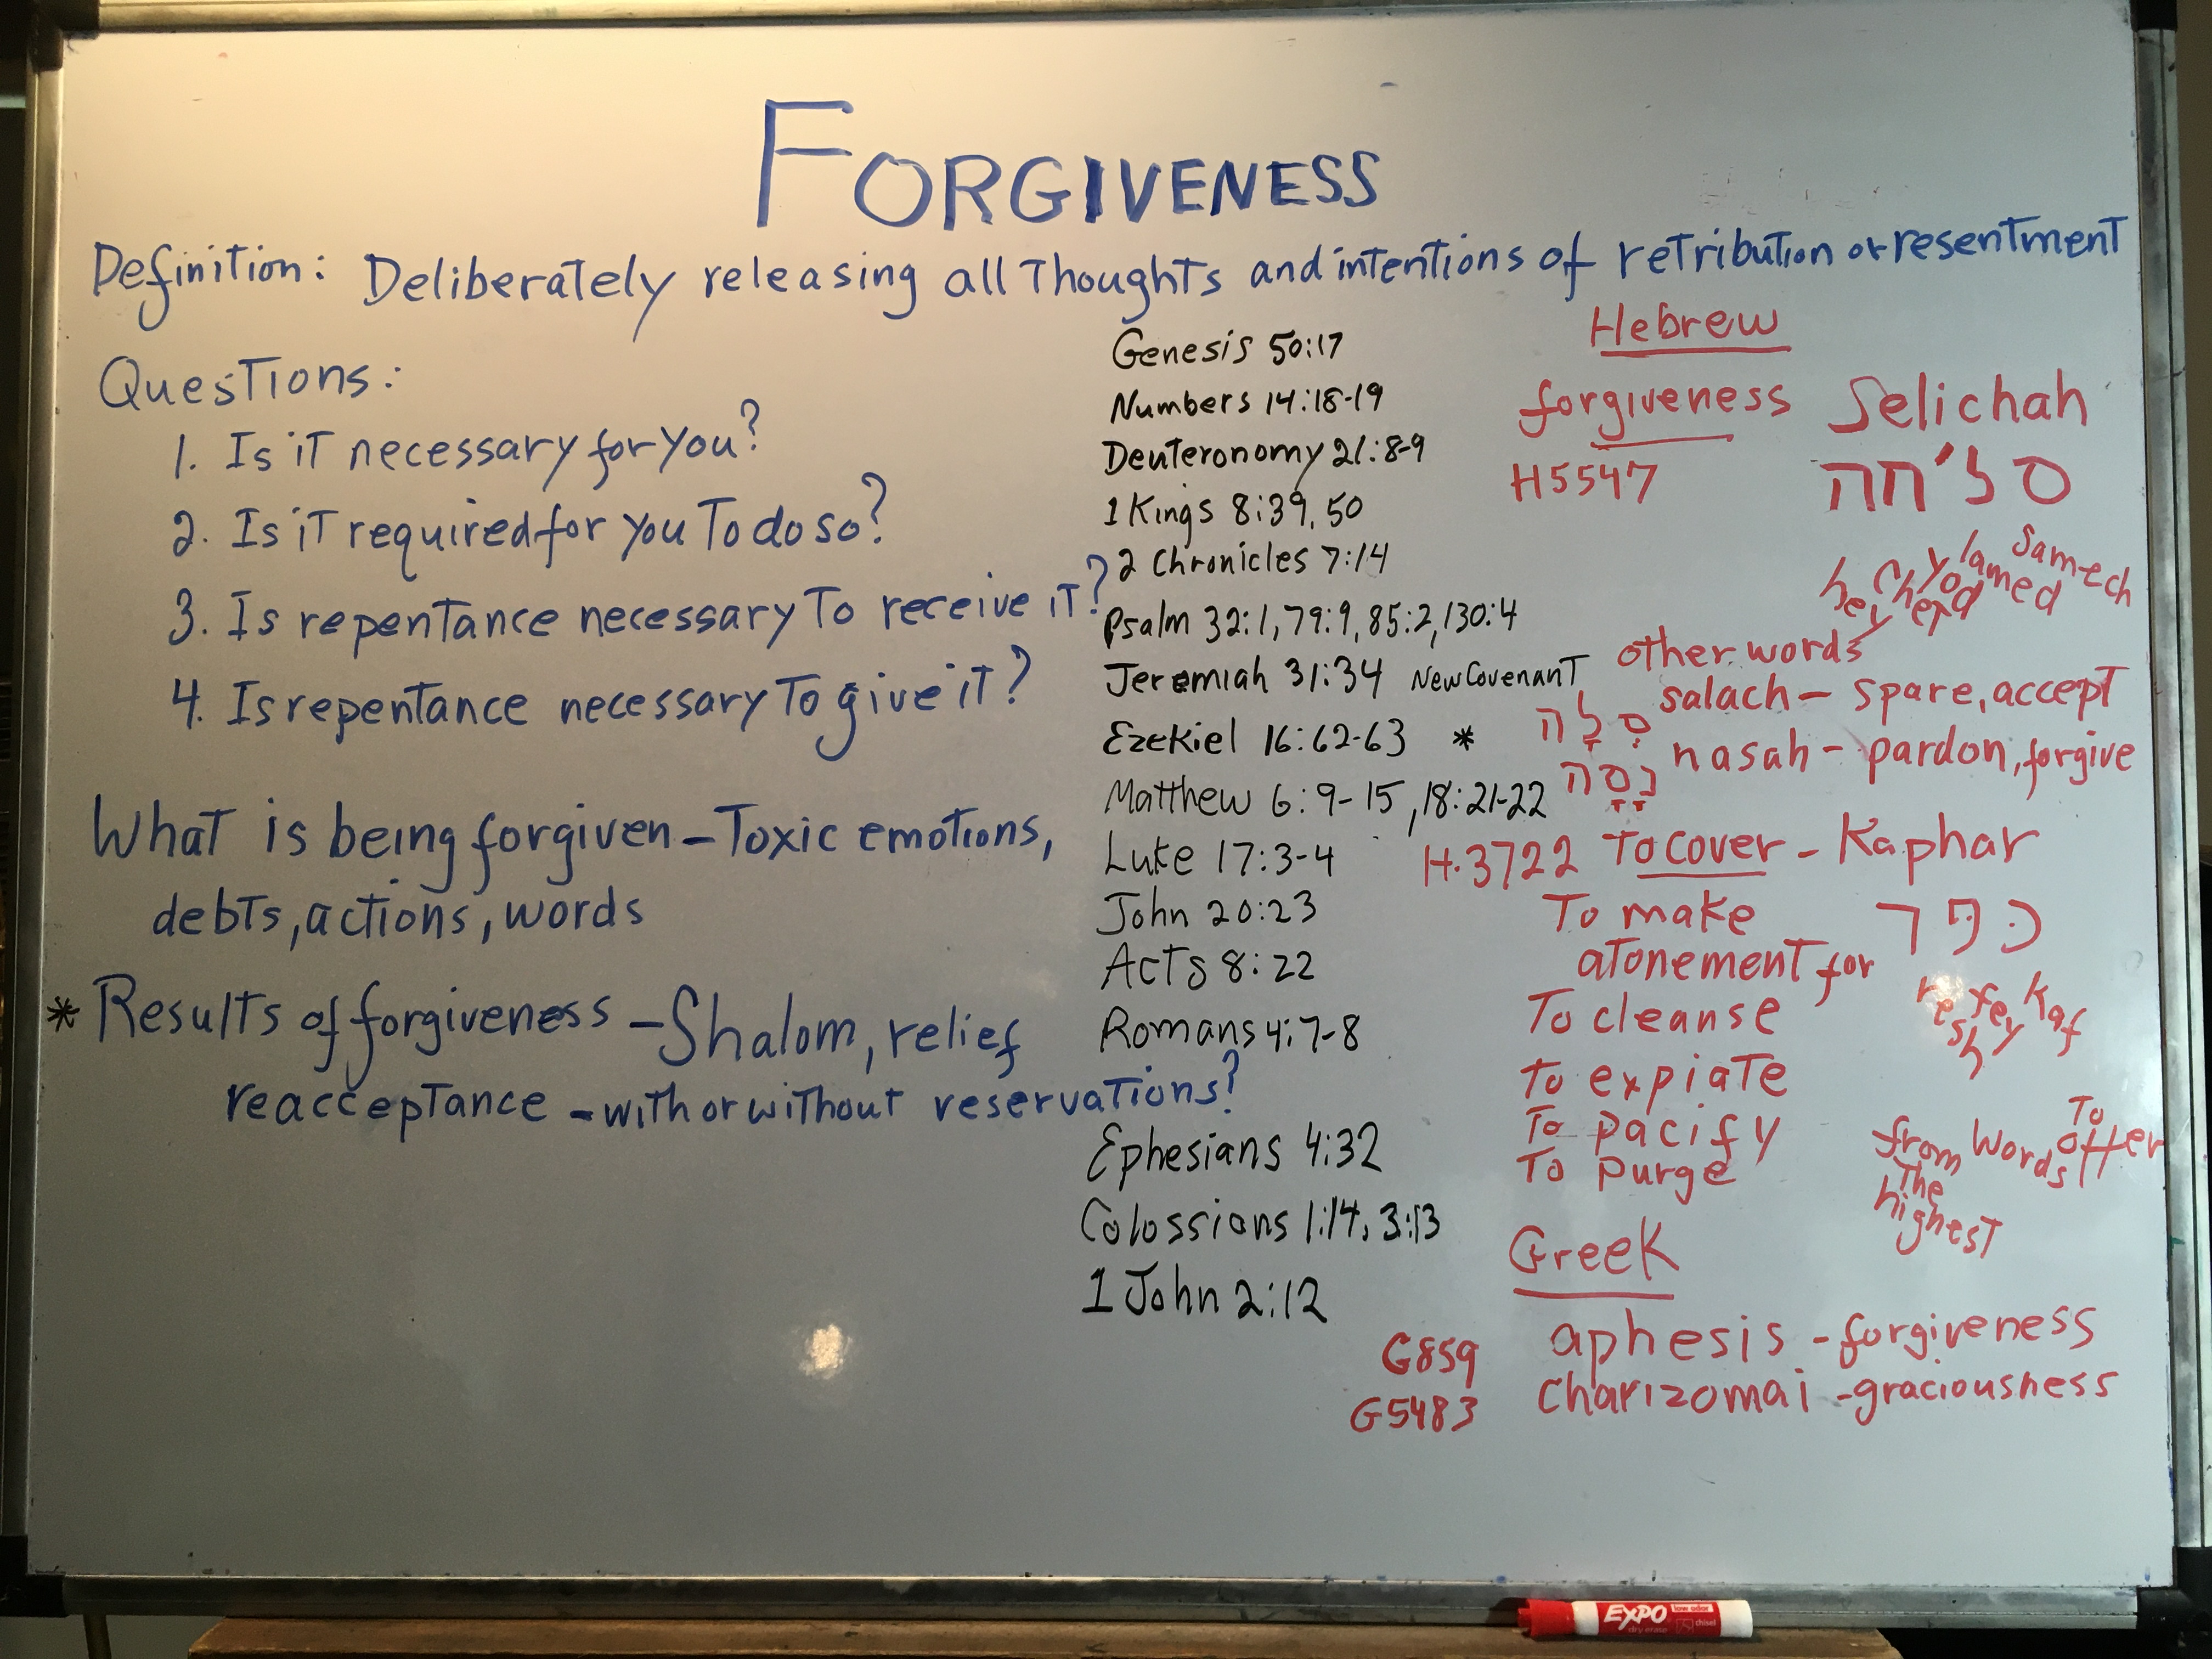 FORGIVENESS
Definition: Deliberately releasing all Thoughts and intentions of retribution or resentment
Questions:
1. Is it necessary for you?
2. Is it required for you To do so?
3. Is repentance necessary To receive it?
4. Is repentance necessary To give it?
What is being forgiven - Toxic emotions,
debts, actions, words
* Results of forgiveness - Shalom, relief
reacceptance - with or without reservations?
Genesis 50:17
Numbers 14:18-19
Deuteronomy 21:8-9
1 Kings 8:39, 50
2 Chronicles 7:14
Psalm 32:1, 79:9, 85:2, 130:4
Jeremiah 31:34 New Covenant
Ezekiel 16:62-63 *
Matthew 6:9-15, 18:21-22
Luke 17:3-4
John 20:23
Acts 8:22
Romans 4:7-8
Ephesians 4:32
Colossians 1:14, 3:13
1 John 2:12
Hebrew
forgiveness Selichah
H5547 סליחה
Samech
lamed
yod
chet
hey
other words
salach - spare, accept
סָלַה
nasah - pardon, forgive
נָסָה
H.3722 To cover - Kaphar
To make כּפּר
atonement for
Kaf
fey
resh
To cleanse
To expiate
To pacify
To purge
from The highest
Words To offer
Greek
G859 aphesis - forgiveness
G5483 charizomai - graciousness
EXPO
low odor
dry erase
chisel